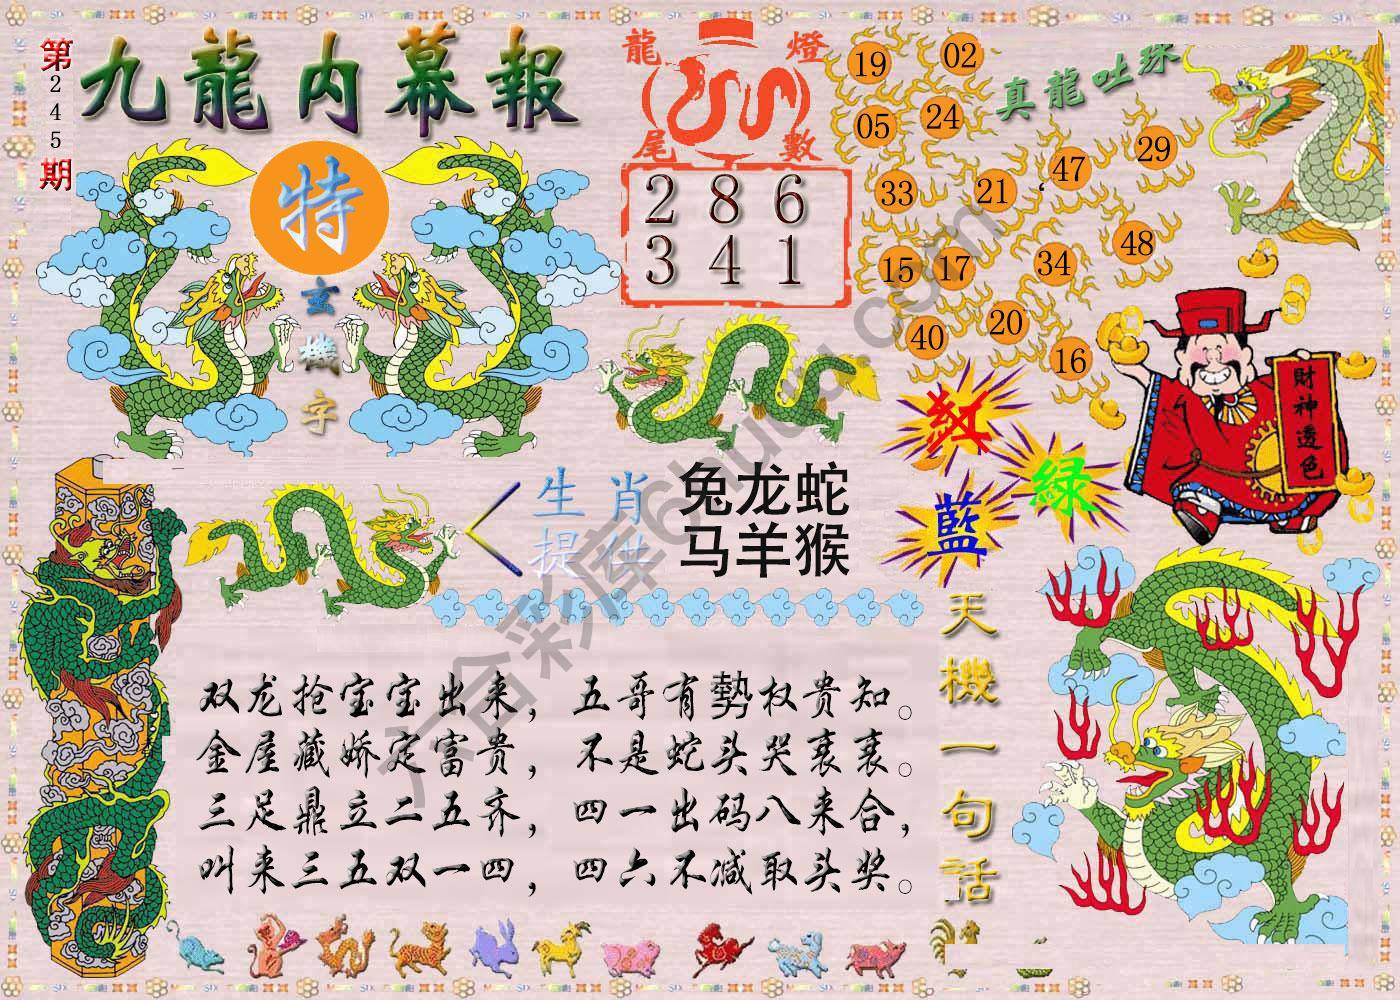 第245期
九龍内幕報
特
玄機字
龍燈尾數
2 8 6
3 4 1
真龍吐珠
19 02
05 24
47 29
33 21
15 17 34 48
40 20 16
財神透色
紅
綠
藍
生肖提供
兔龙蛇
马羊猴
天機一句話
双龙抢宝宝出来，五哥有勢权贵知。
金屋藏娇定富贵，不是蛇头哭哀哀。
三足鼎立二五齐，四一出码八来合，
叫来三五双一四，四六不减取头奖。
六合彩库6huu.com